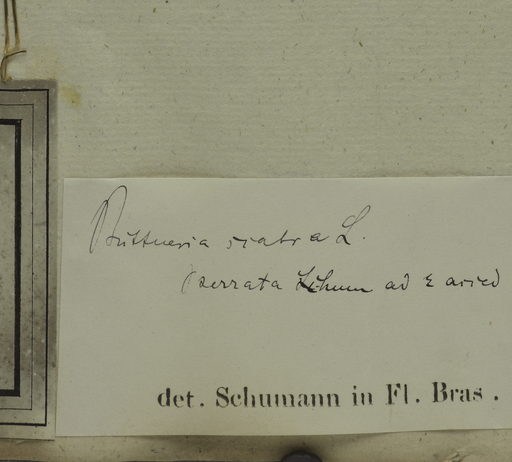 Büttneria scabra L.
(serrata Schum ad
det. Schumann in Fl. Bras.